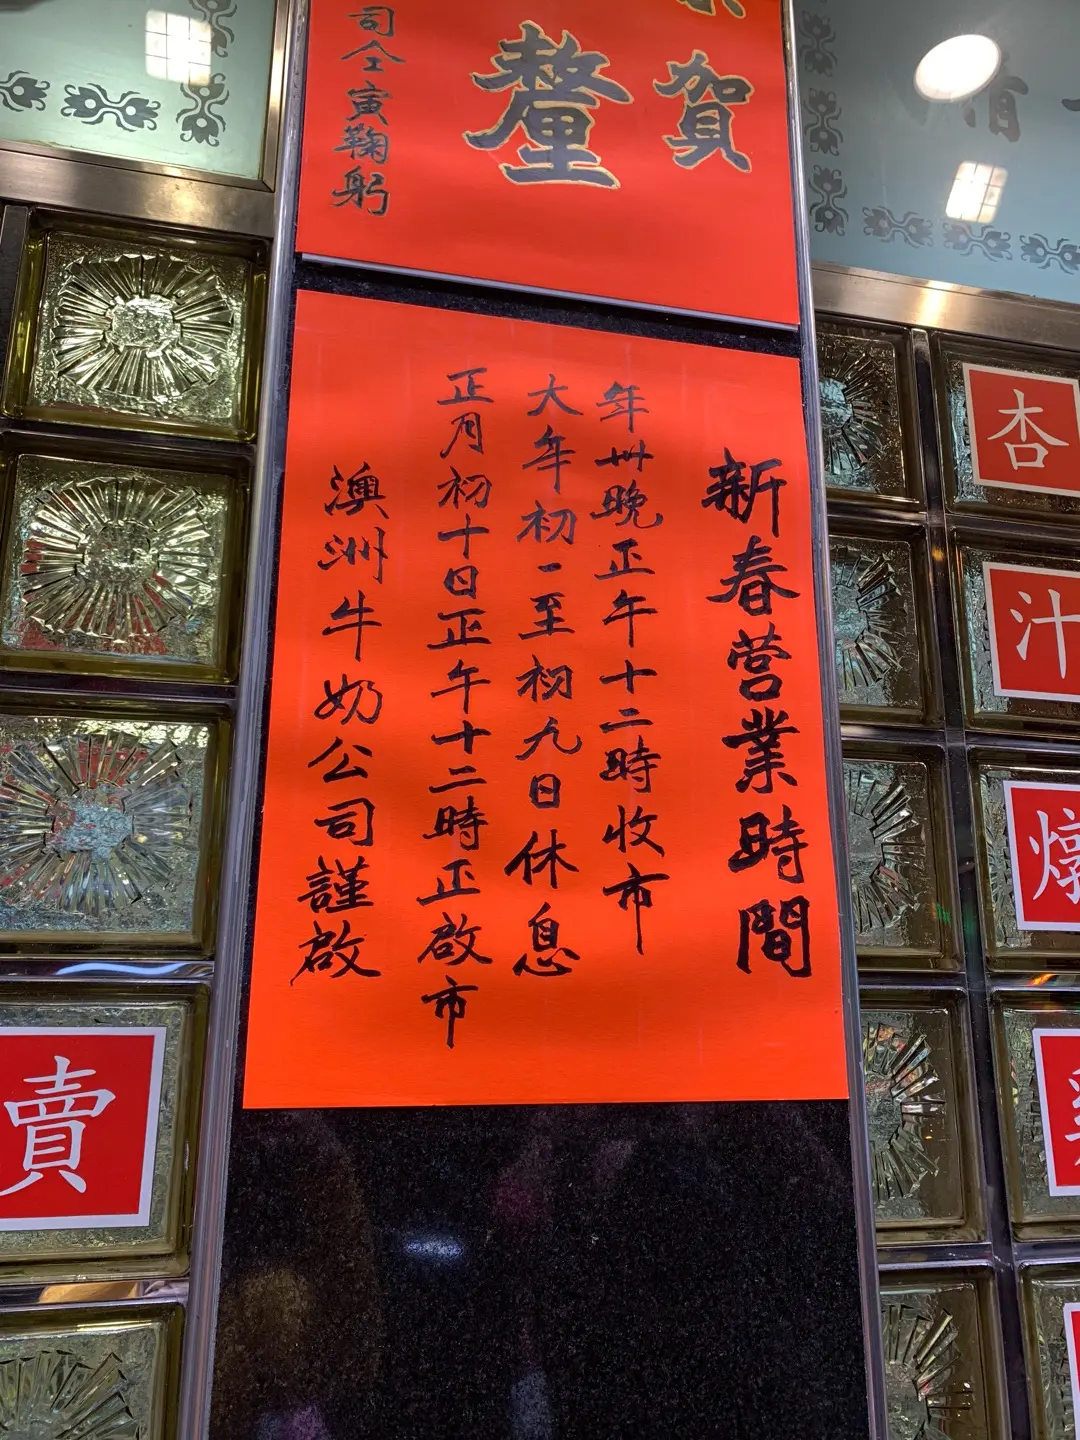 賀
釐
司仝寅鞠躬
新春营業時間
年卅晚正午十二時收市
大年初一至初九日休息
正月初十日正午十二時正啟市
澳洲牛奶公司謹啟
杏汁燉
賣